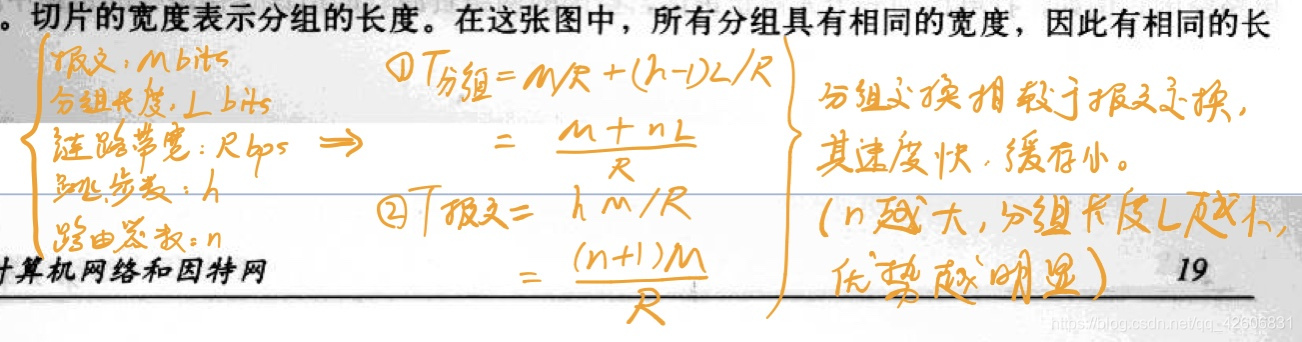 。切片的宽度表示分组的长度。在这张图中，所有分组具有相同的宽度，因此有相同的长
报文：M bits
分组长度：L bits
链路带宽：R bps ⇒
跳步数：h
路由器数：n
① T分组 = M/R + (h-1)L/R
= (M + nL)/R
② T报文 = hM/R
= (n+1)M/R
分组交换相较于报文交换，
其速度快、缓存小。
(n越大，分组长度L越小，
优势越明显)
计算机网络和因特网
19
https://blog.csdn.net/qq_42606831